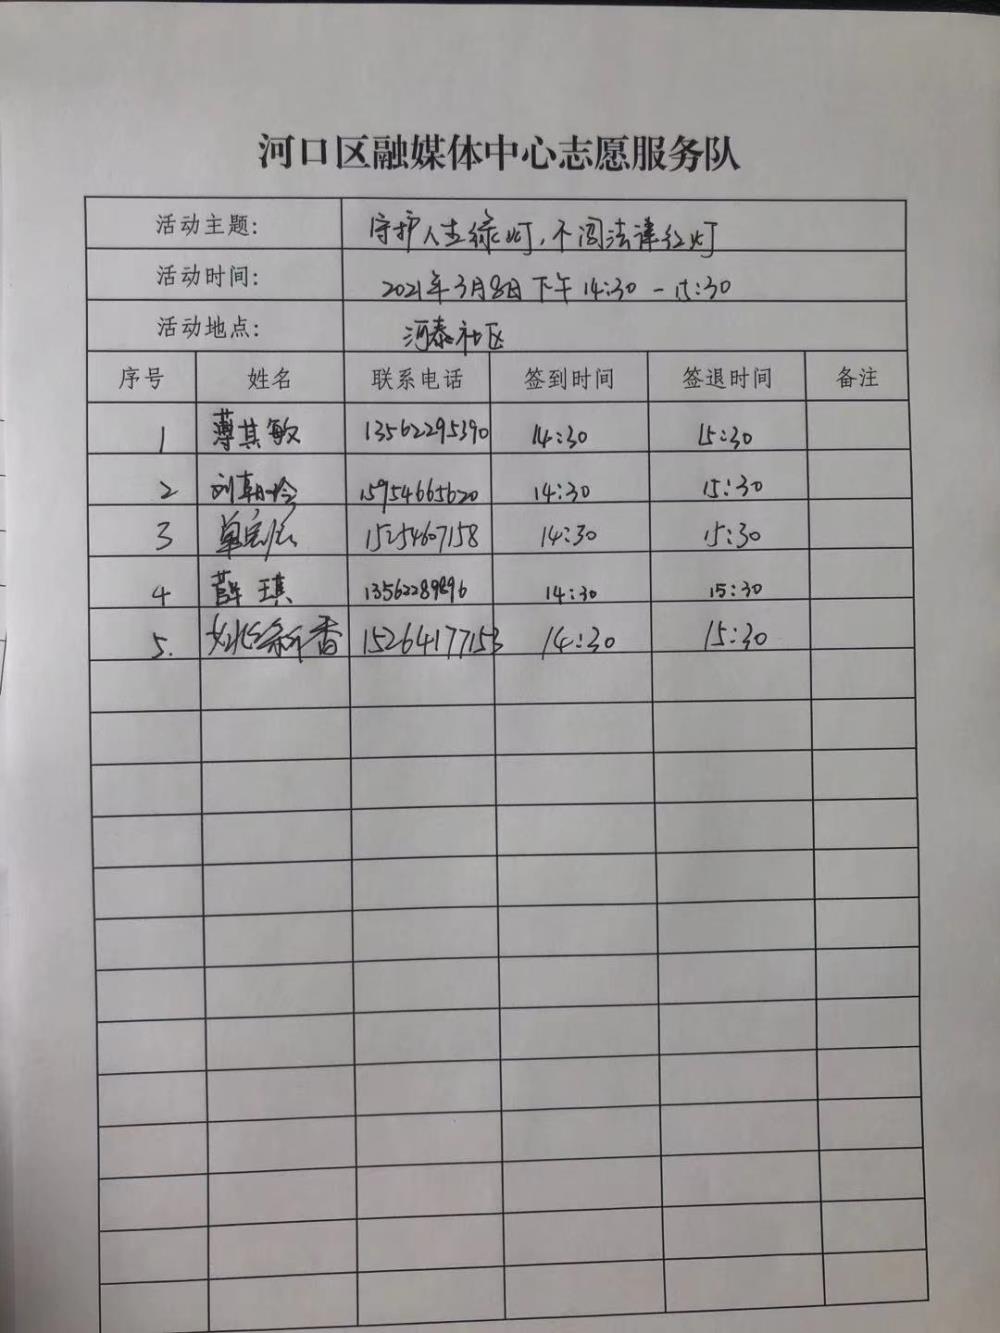 河口区融媒体中心志愿服务队
活动主题： 守护人生绿灯，不闯法律红灯
活动时间： 2021年3月8日下午14:30-15:30
活动地点： 河泰社区
序号 姓名 联系电话 签到时间 签退时间 备注
1 薄其敏 13562295390 14:30 15:30
2 刘朝玲 15954665620 14:30 15:30
3 15254607158 14:30 15:30
4 薛琪 13562289896 14:30 15:30
5. 香 15264177153 14:30 15:30